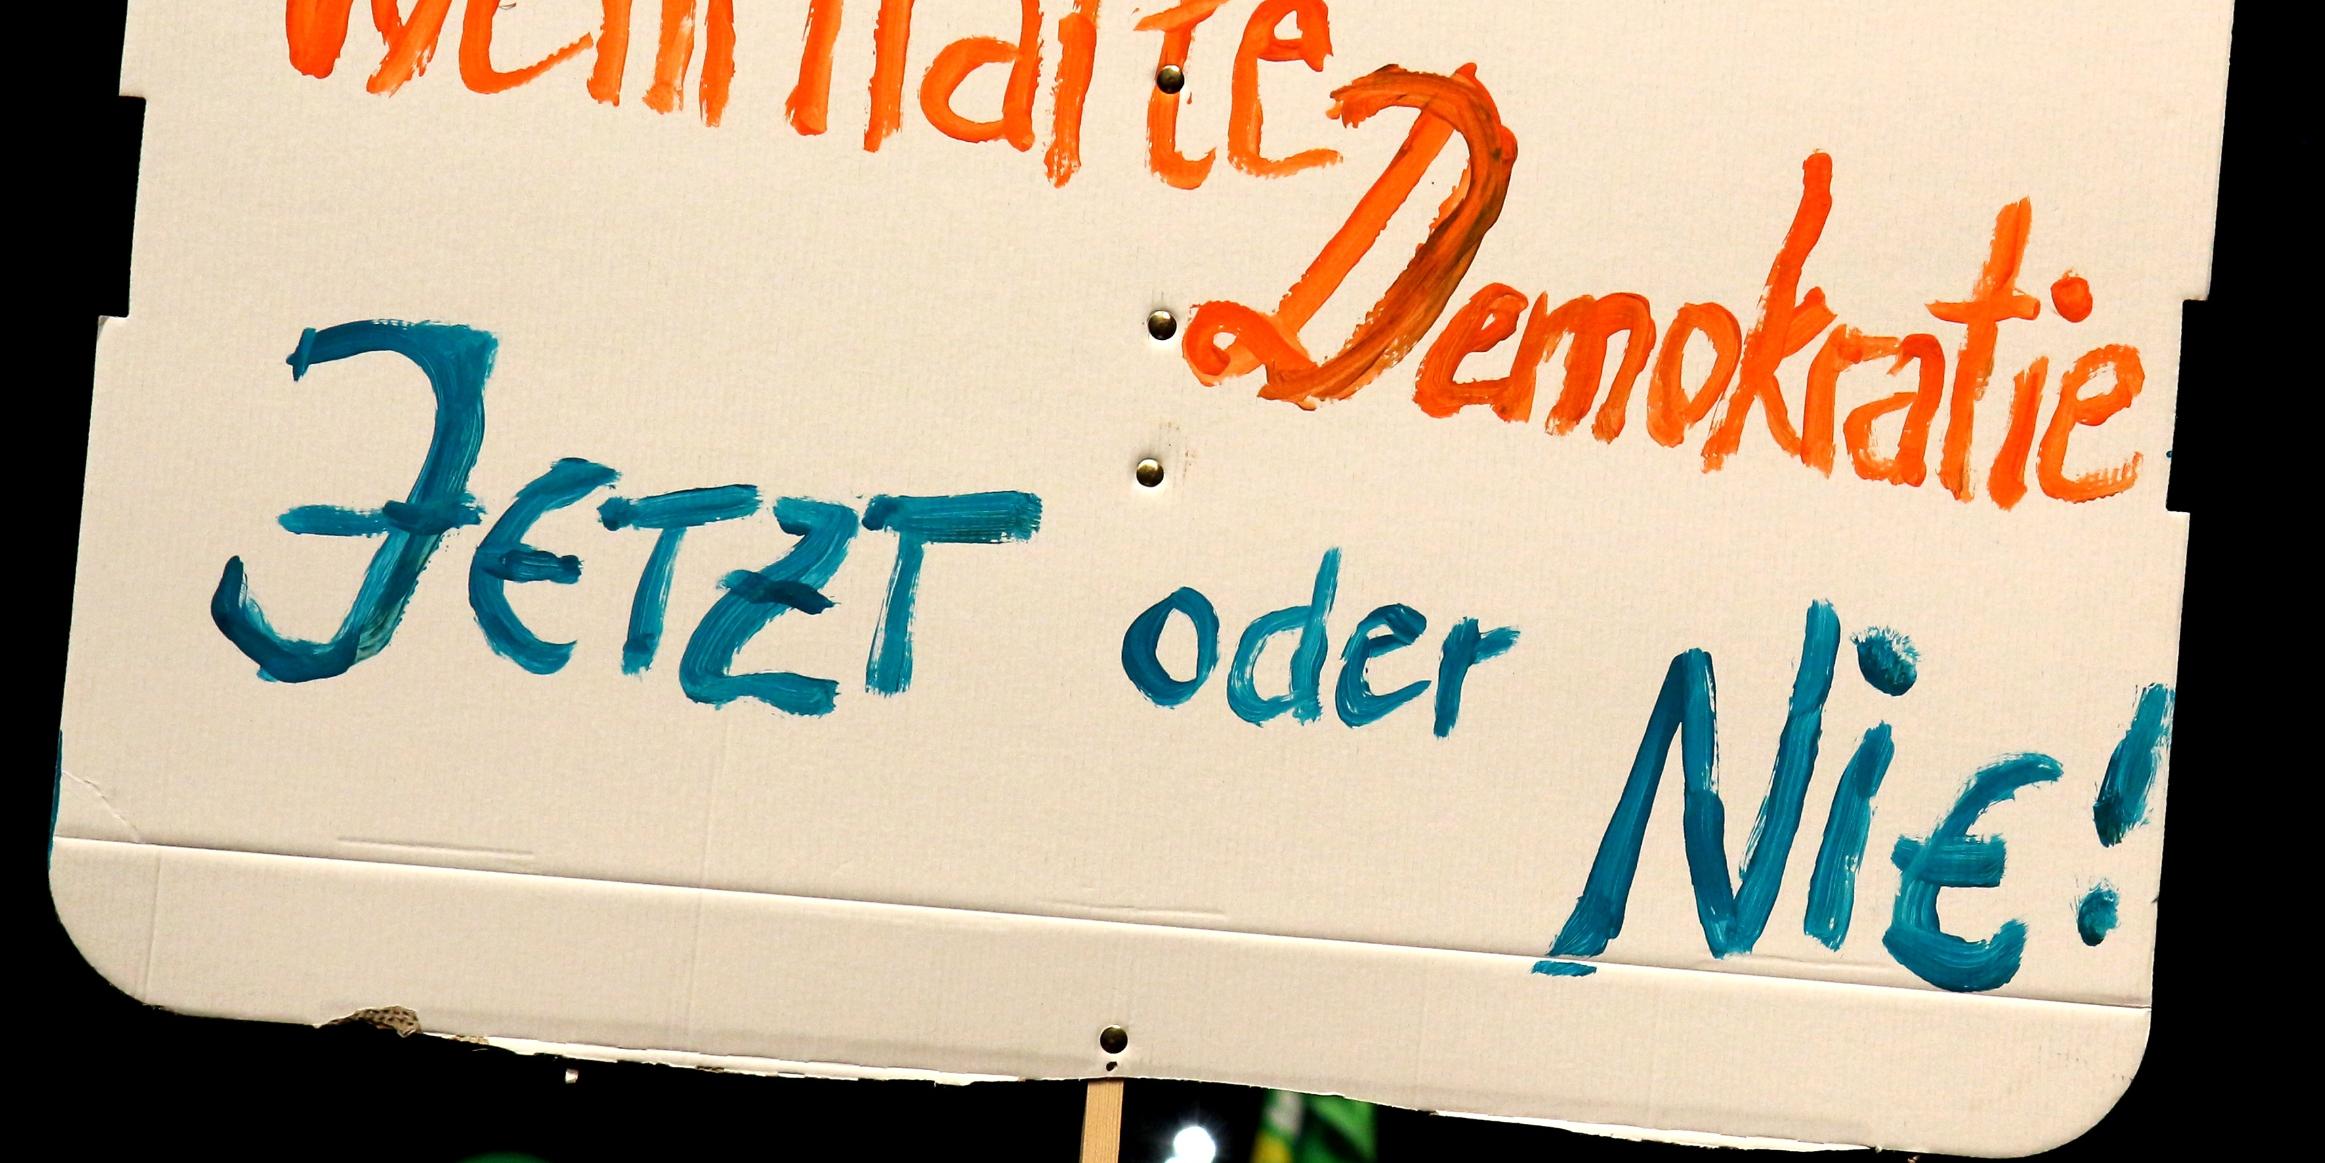 Wehrhafte
Demokratie
JETZT oder NiE!